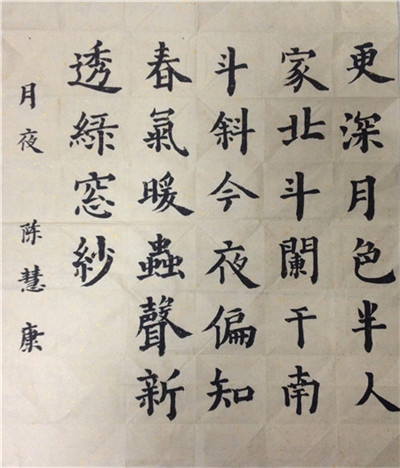 更深月色半人
家北斗闌干南
斗斜今夜偏知
春氣暖蟲聲新
透綠窓紗
月夜 陈慧庚